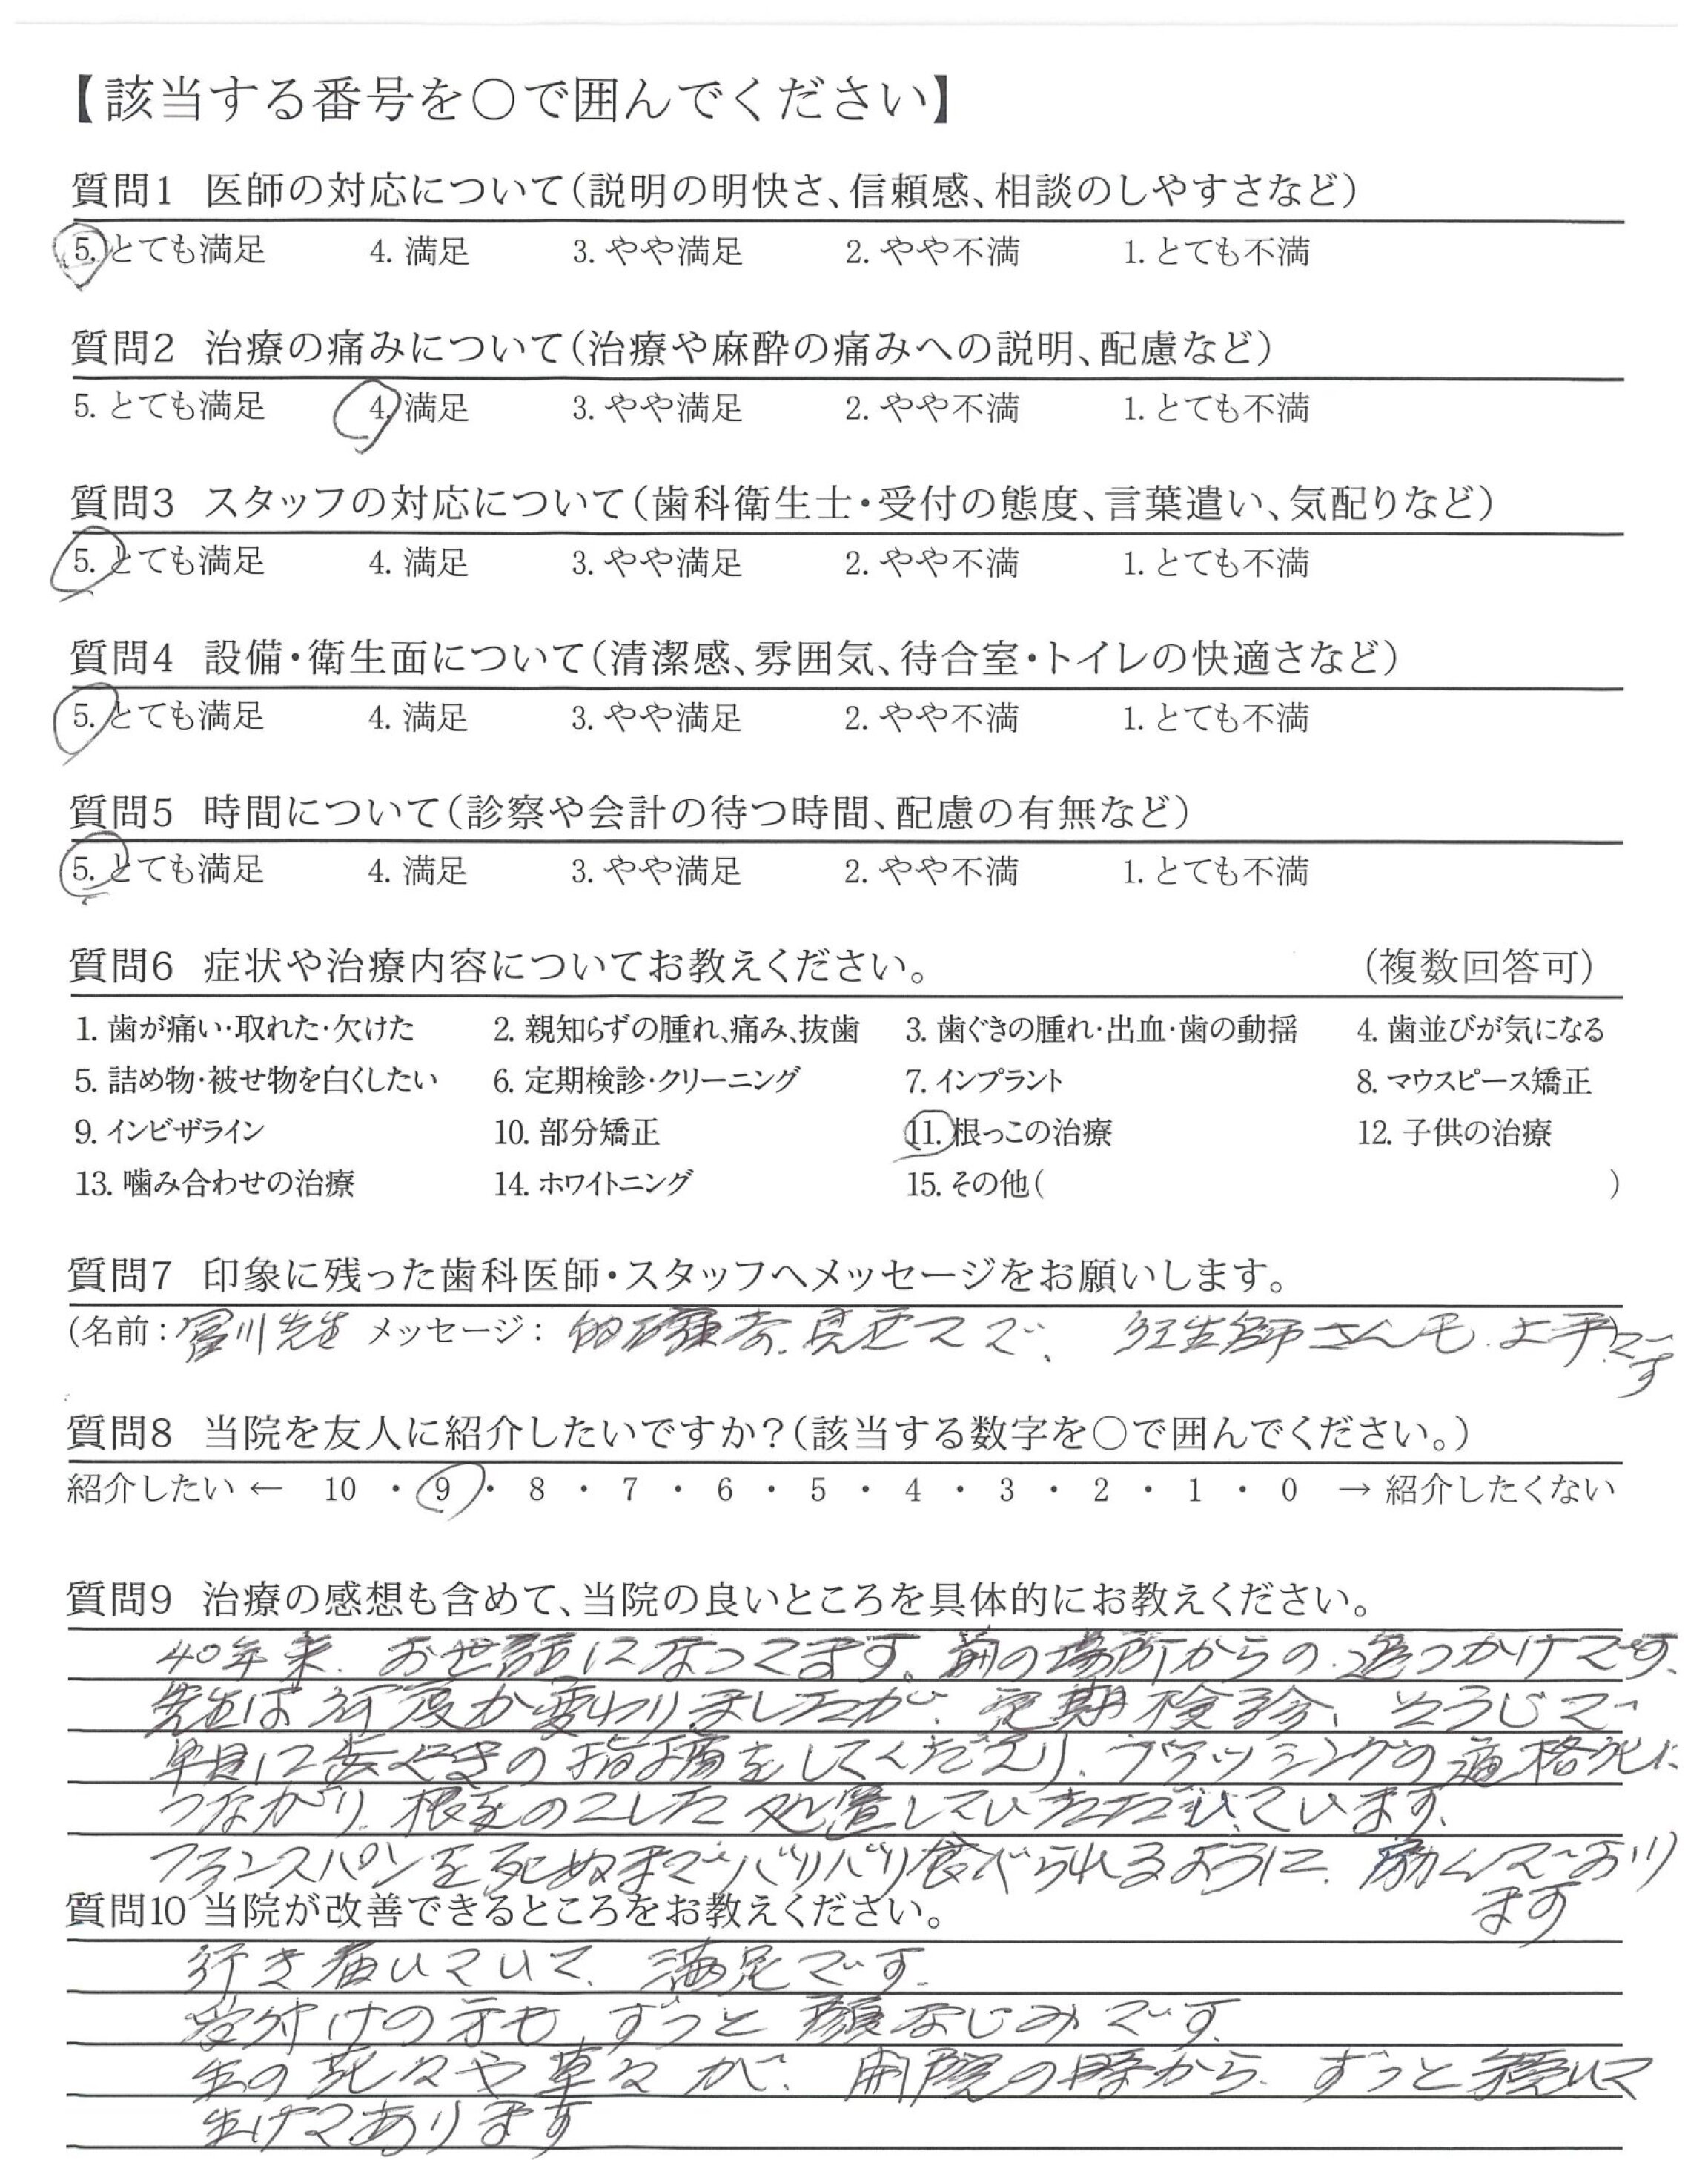 【該当する番号を○で囲んでください】
質問1 医師の対応について（説明の明快さ、信頼感、相談のしやすさなど）
5. とても満足 4. 満足 3. やや満足 2. やや不満 1. とても不満
質問2 治療の痛みについて（治療や麻酔の痛みへの説明、配慮など）
5. とても満足 4. 満足 3. やや満足 2. やや不満 1. とても不満
質問3 スタッフの対応について（歯科衛生士・受付の態度、言葉遣い、気配りなど）
5. とても満足 4. 満足 3. やや満足 2. やや不満 1. とても不満
質問4 設備・衛生面について（清潔感、雰囲気、待合室・トイレの快適さなど）
5. とても満足 4. 満足 3. やや満足 2. やや不満 1. とても不満
質問5 時間について（診察や会計の待つ時間、配慮の有無など）
5. とても満足 4. 満足 3. やや満足 2. やや不満 1. とても不満
質問6 症状や治療内容についてお教えください。 （複数回答可）
1. 歯が痛い・取れた・欠けた 2. 親知らずの腫れ、痛み、抜歯 3. 歯ぐきの腫れ・出血・歯の動揺 4. 歯並びが気になる
5. 詰め物・被せ物を白くしたい 6. 定期検診・クリーニング 7. インプラント 8. マウスピース矯正
9. インビザライン 10. 部分矯正 11. 根っこの治療 12. 子供の治療
13. 噛み合わせの治療 14. ホワイトニング 15. その他（ ）
質問7 印象に残った歯科医師・スタッフへメッセージをお願いします。
（名前：宮川先生 メッセージ： 的確な見立てで、 さんも、上手です
質問8 当院を友人に紹介したいですか？（該当する数字を○で囲んでください。）
紹介したい ← 10 ・ 9 ・ 8 ・ 7 ・ 6 ・ 5 ・ 4 ・ 3 ・ 2 ・ 1 ・ 0 → 紹介したくない
質問9 治療の感想も含めて、当院の良いところを具体的にお教えください。
40年来、お世話になってます。前の場所からの追っかけです、
先生は何度か変わりましたが、定期検診、そうじで
早目に歩ぐきの指摘をしてくださり、ブラッシングの
つながり、根を のこした処置していただいています、
フランスパンを死ぬまでバリバリ食べられるように、励んでおり
ます
質問10 当院が改善できるところをお教えください。
行き届いていて、満足です、
受付けの方も、ずっと顔なじみです、
生の花々や草々が、開院の時から、ずっと続いて
生けてあります